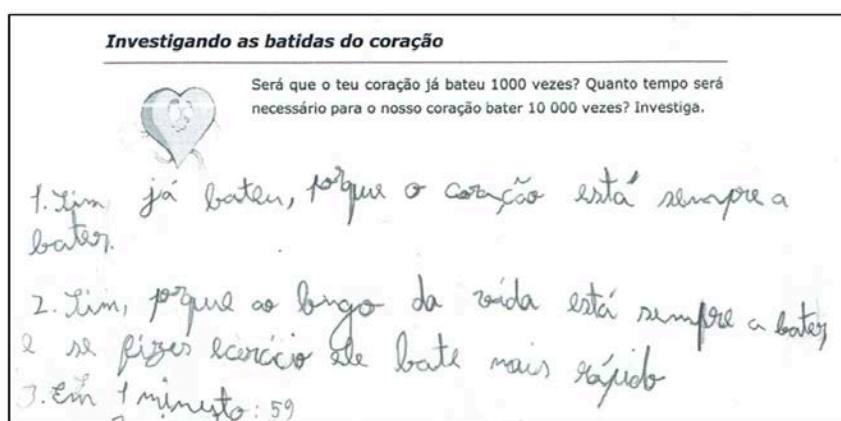 Investigando as batidas do coração
Será que o teu coração já bateu 1000 vezes? Quanto tempo será
necessário para o nosso coração bater 10 000 vezes? Investiga.
1. Sim, já bateu, porque o coração está sempre a
bater.
2. Sim, porque ao longo da vida está sempre a bater,
e se fizer ecercício ele bate mais rápido
3. Em 1 minuto: 59